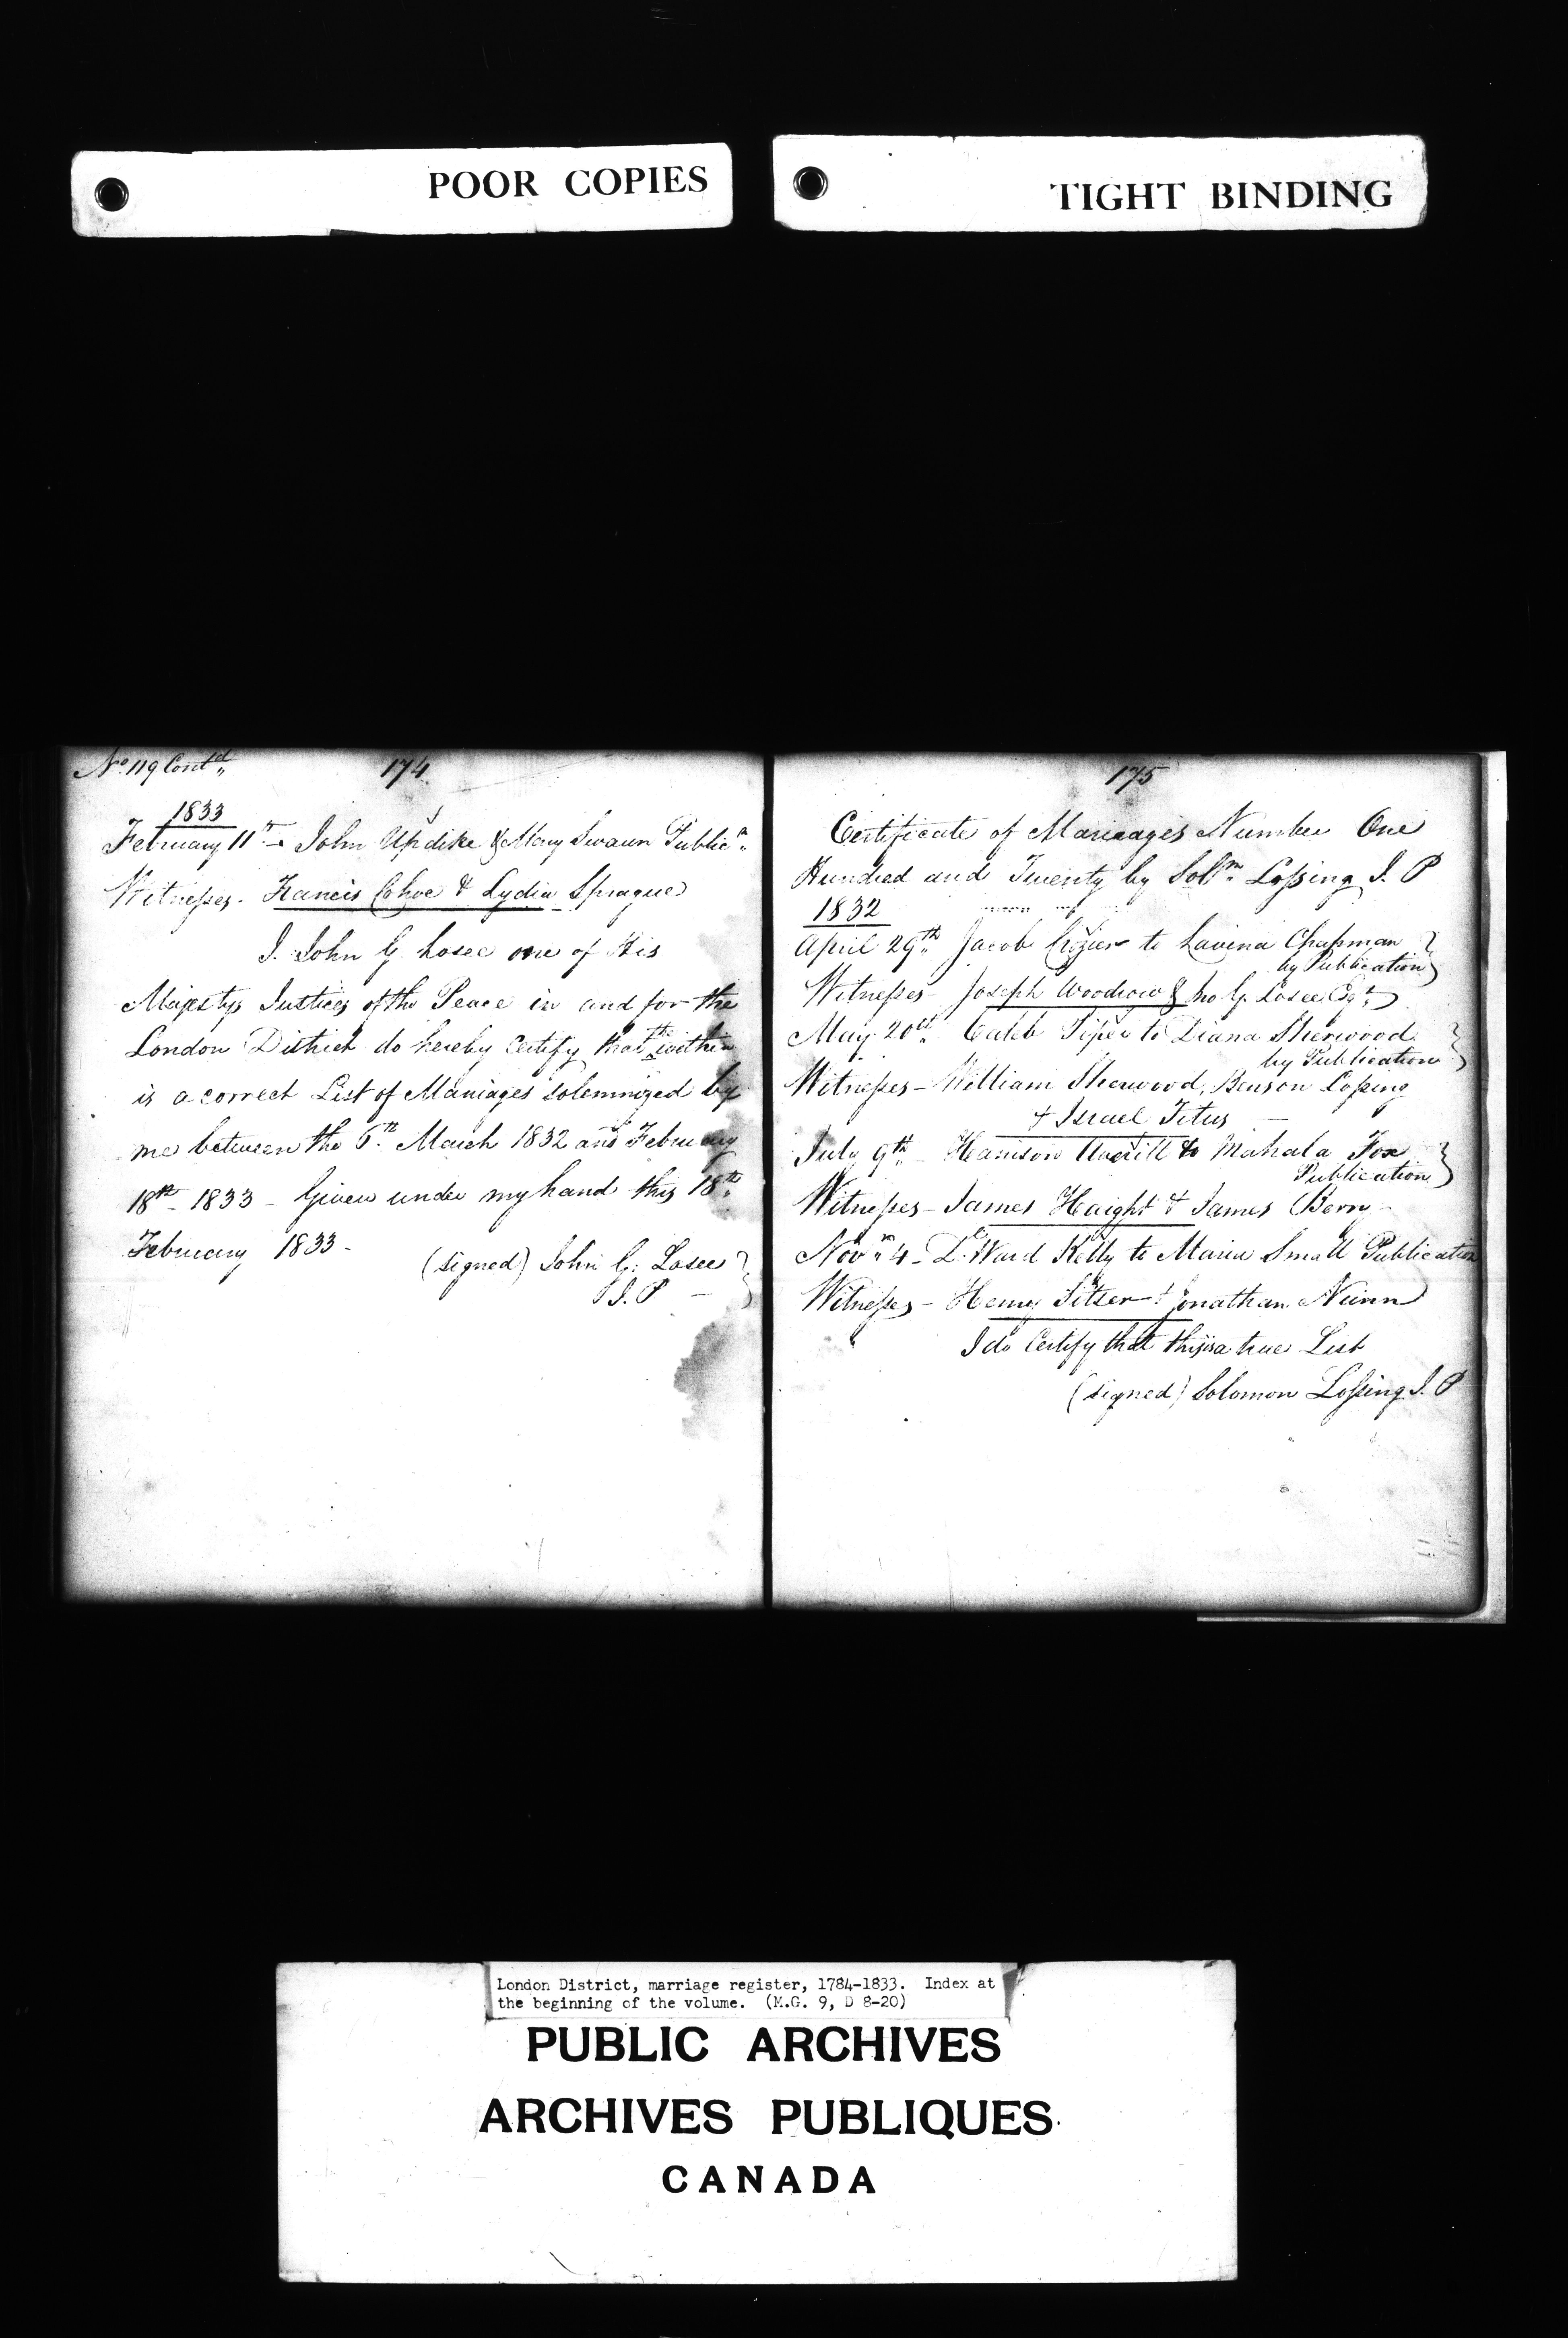 POOR COPIES
TIGHT BINDING
No. 119 Contd
174
1833
February 11th - John Updike & Mary Swaun Publicn
Witnesses - Francis Cohoe & Lydia Sprague
I. John G Losee one of His
Majestys Justices of the Peace in and for the
London District do hereby Certify that the within
is a correct List of Marriages solemnized by
me between the 6th March 1832 and February
18th 1833 - Given under my hand this 18th
February 1833 -
(signed) John G: Losee
J. P -
175
Certificate of Marriages Number One
Hundred and Twenty by Solmn Lossing J. P
1832
April 29th Jacob Crozier to Lavina Chapman
by Publication
Witnesses - Joseph Woodrow & Jno G. Losee Esqr
May 20th Caleb Piper to Diana Sherwood
by Publication
Witnesses - William Sherwood, Benson Lossing
& Israel Titus
July 9th - Harrison Averill to Mahala Fox
Publication
Witnesses - James Haight & James Berry -
Novr 4 - Ward Kelly to Maria Small Publication
Witnesses - Henry Sitzer & Jonathan Nunn
I do Certify that this is a true List
(signed) Solomon Lossing J. P
London District, marriage register, 1784-1833. Index at
the beginning of the volume. (M.G. 9, D 8-20)
PUBLIC ARCHIVES
ARCHIVES PUBLIQUES
CANADA